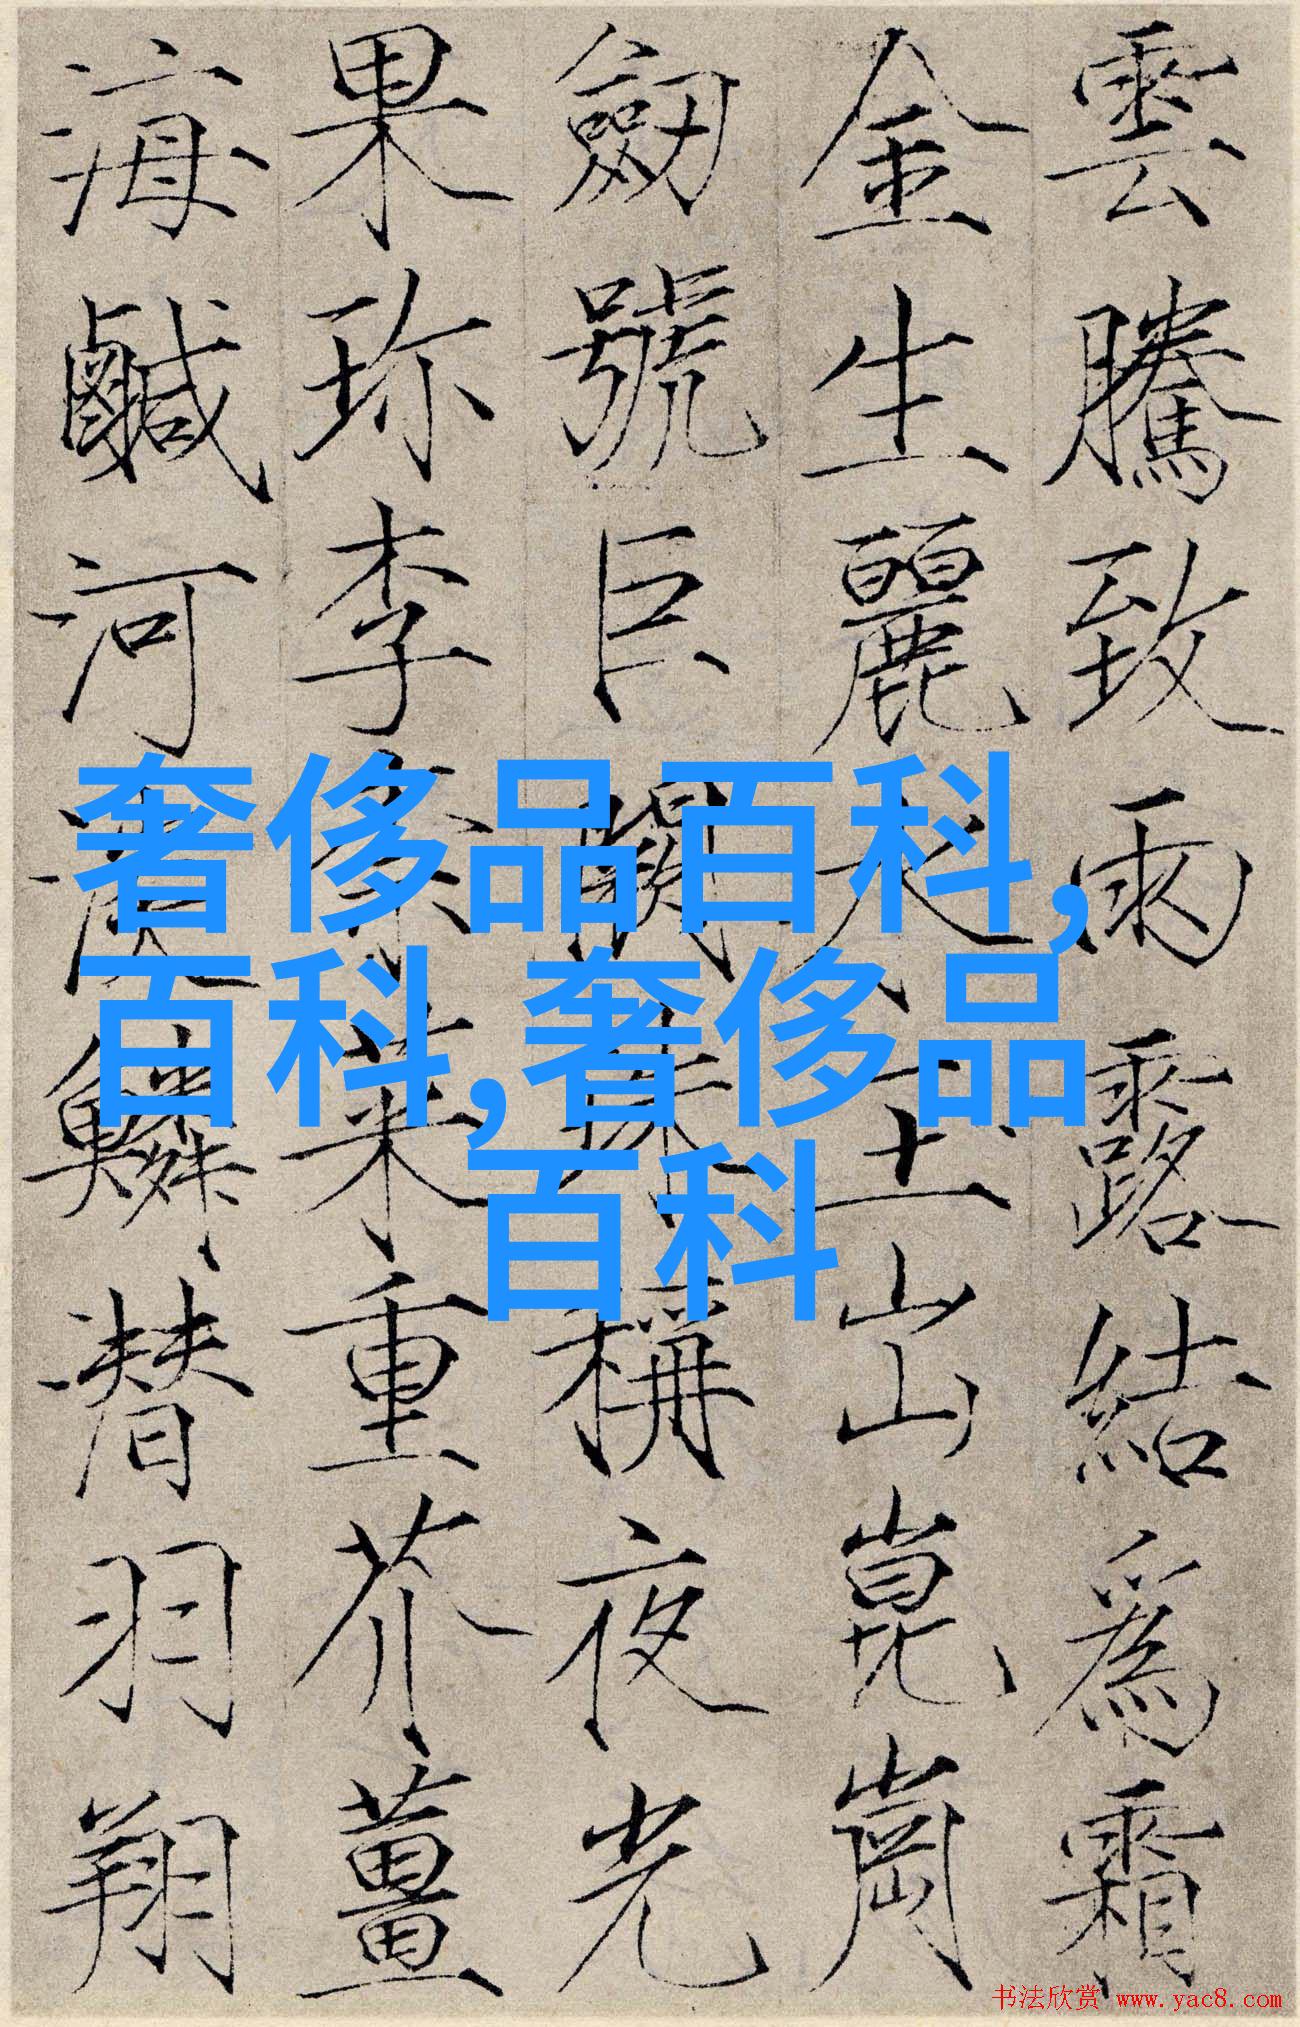 雲騰致雨露結爲霜
金生麗水玉出崑崗
劒號巨闕珠稱夜光
果珎李柰菜重芥薑
海鹹河淡鱗潜羽翔
奢侈品百科,
百科,奢侈品
百科
书法欣赏 www.yac8.com